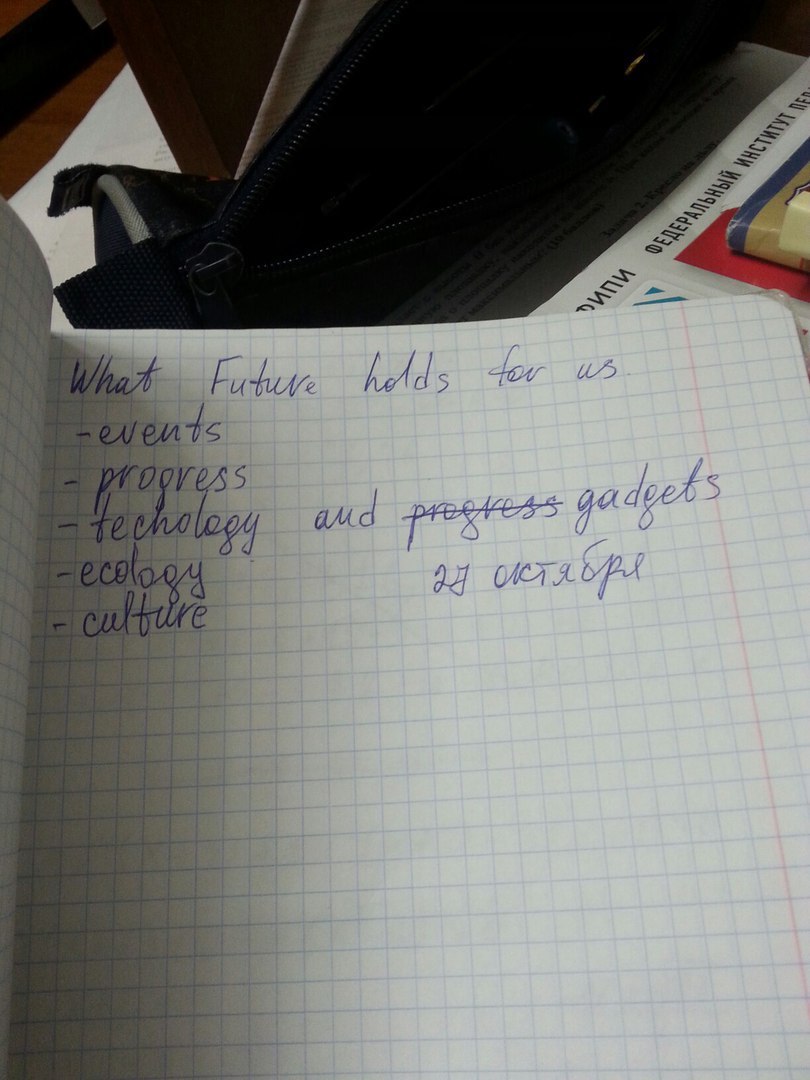 ФЕДЕРАЛЬНЫЙ ИНСТИТУТ ПЕД
ФИПИ
What Future holds for us.
- events
- progress
- techology and progress gadgets
- ecology
27 октября
- culture